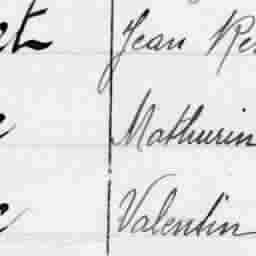 et Jean Re
Mathurin
Valentin